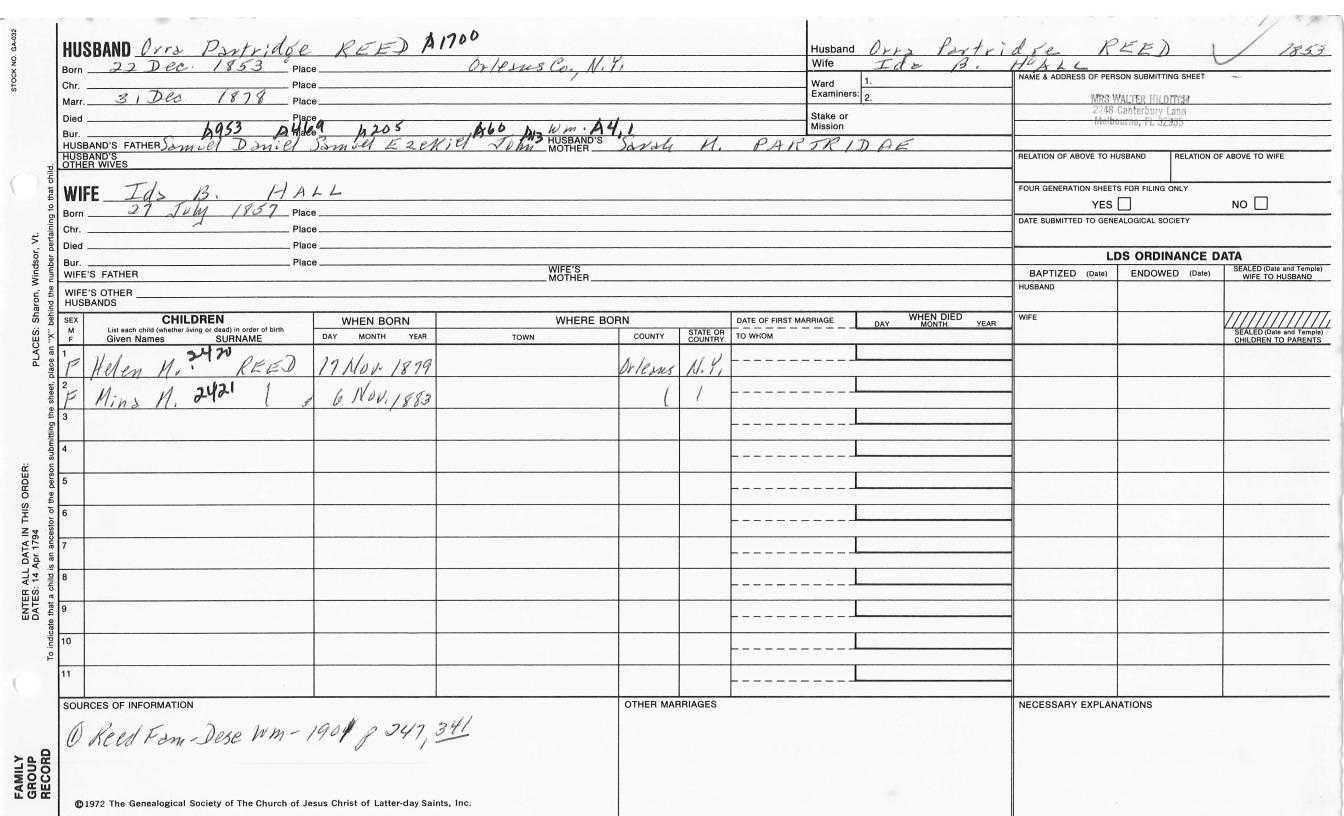 STOCK NO. GA-032
HUSBAND Orra Partridge REED A1700
Born 22 Dec. 1853 Place Orleans Co., N.Y.
Chr. Place
Marr. 31 Dec 1878 Place
Died Place
Bur. Place
A953 A469 A205 A60 A13 Wm. A4,1
HUSBAND'S FATHER Samuel Daniel Samuel Ezekiel John HUSBAND'S MOTHER Sarah M. PARTRIDAE
HUSBAND'S OTHER WIVES
Husband Orra Partridge REED 1853
Wife Ida B. HALL
Ward Examiners: 1.
2.
Stake or Mission
NAME & ADDRESS OF PERSON SUBMITTING SHEET
MRS WALTER HILDITCH
2248 Canterbury Lane
Melbourne, FL 32935
RELATION OF ABOVE TO HUSBAND RELATION OF ABOVE TO WIFE
FOUR GENERATION SHEETS FOR FILING ONLY
YES NO
DATE SUBMITTED TO GENEALOGICAL SOCIETY
WIFE Ida B. HALL
Born 27 July 1857 Place
Chr. Place
Died Place
Bur. Place
WIFE'S FATHER WIFE'S MOTHER
WIFE'S OTHER HUSBANDS
LDS ORDINANCE DATA
BAPTIZED (Date) ENDOWED (Date) SEALED (Date and Temple) WIFE TO HUSBAND
HUSBAND
WIFE
SEALED (Date and Temple) CHILDREN TO PARENTS
SEX M F
CHILDREN
List each child (whether living or dead) in order of birth
Given Names SURNAME
WHEN BORN
DAY MONTH YEAR
WHERE BORN
TOWN COUNTY STATE OR COUNTRY
DATE OF FIRST MARRIAGE
TO WHOM
WHEN DIED
DAY MONTH YEAR
1 F Helen M. 2420 REED 17 Nov. 1879 Orleans N.Y.
2 F Mina M. 2421 6 Nov. 1883
3
4
5
6
7
8
9
10
11
SOURCES OF INFORMATION
① Reed Fam-Desc Wm- 1901 p 247, 341
OTHER MARRIAGES
NECESSARY EXPLANATIONS
©1972 The Genealogical Society of The Church of Jesus Christ of Latter-day Saints, Inc.
FAMILY GROUP RECORD
ENTER ALL DATA IN THIS ORDER:
DATES: 14 Apr 1794
PLACES: Sharon, Windsor, Vt.
To indicate that a child is an ancestor of the person submitting the sheet, place an "X" behind the number pertaining to that child.